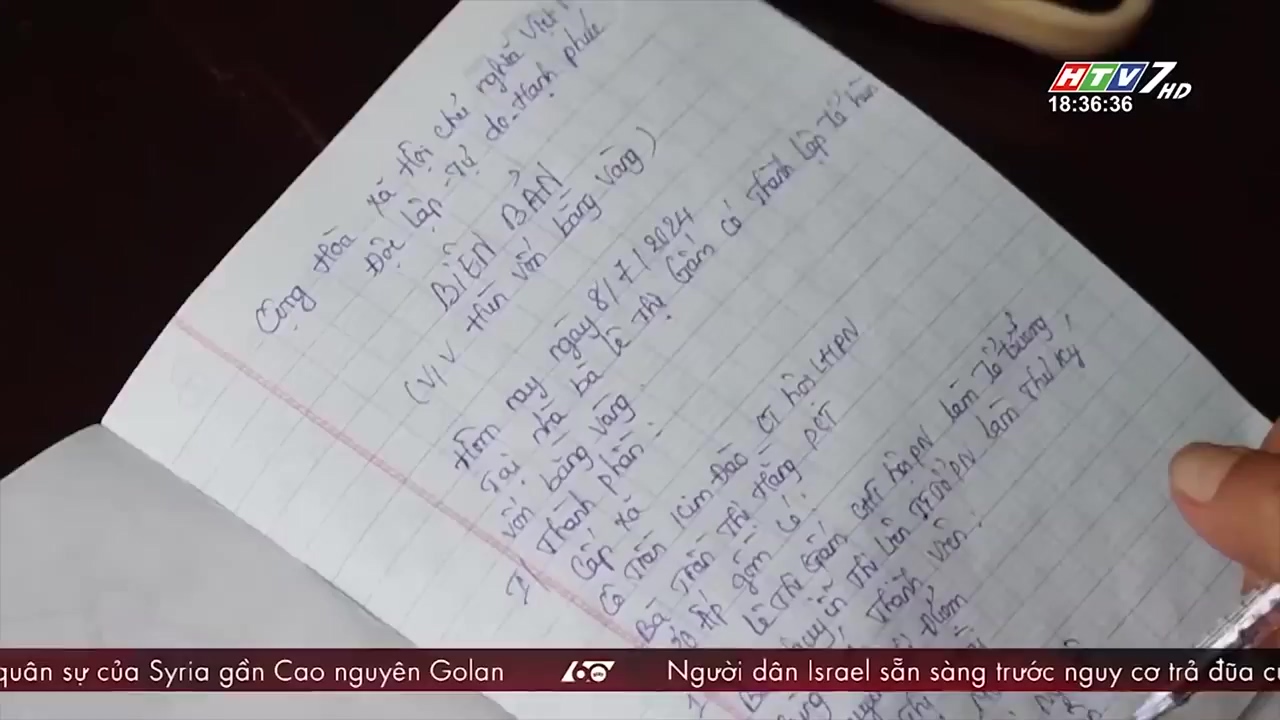 HTV7 HD
18:36:36
Cộng Hòa xã Hội chủ nghĩa Việt
Độc Lập - Tự do - Hạnh phúc
BIÊN BẢN
(V/V Hùn vốn bằng vàng)
Hôm nay ngày 8/7/2024
Tại nhà bà Lê Thị Gấm có Thành Lập Tổ hùn
vốn bằng vàng.
Thành phần:
1/ Cấp xã
Cô Trần Kim Đào - CT hội LHPN
Bà Trần Thị Hằng PCT
Ấp gồm có:
Lê Thị Gấm CHT hội PN làm Tổ trưởng,
Thị Liên làm Thư ký
Thành viên:
quân sự của Syria gần Cao nguyên Golan
60 giây
Người dân Israel sẵn sàng trước nguy cơ trả đũa củ